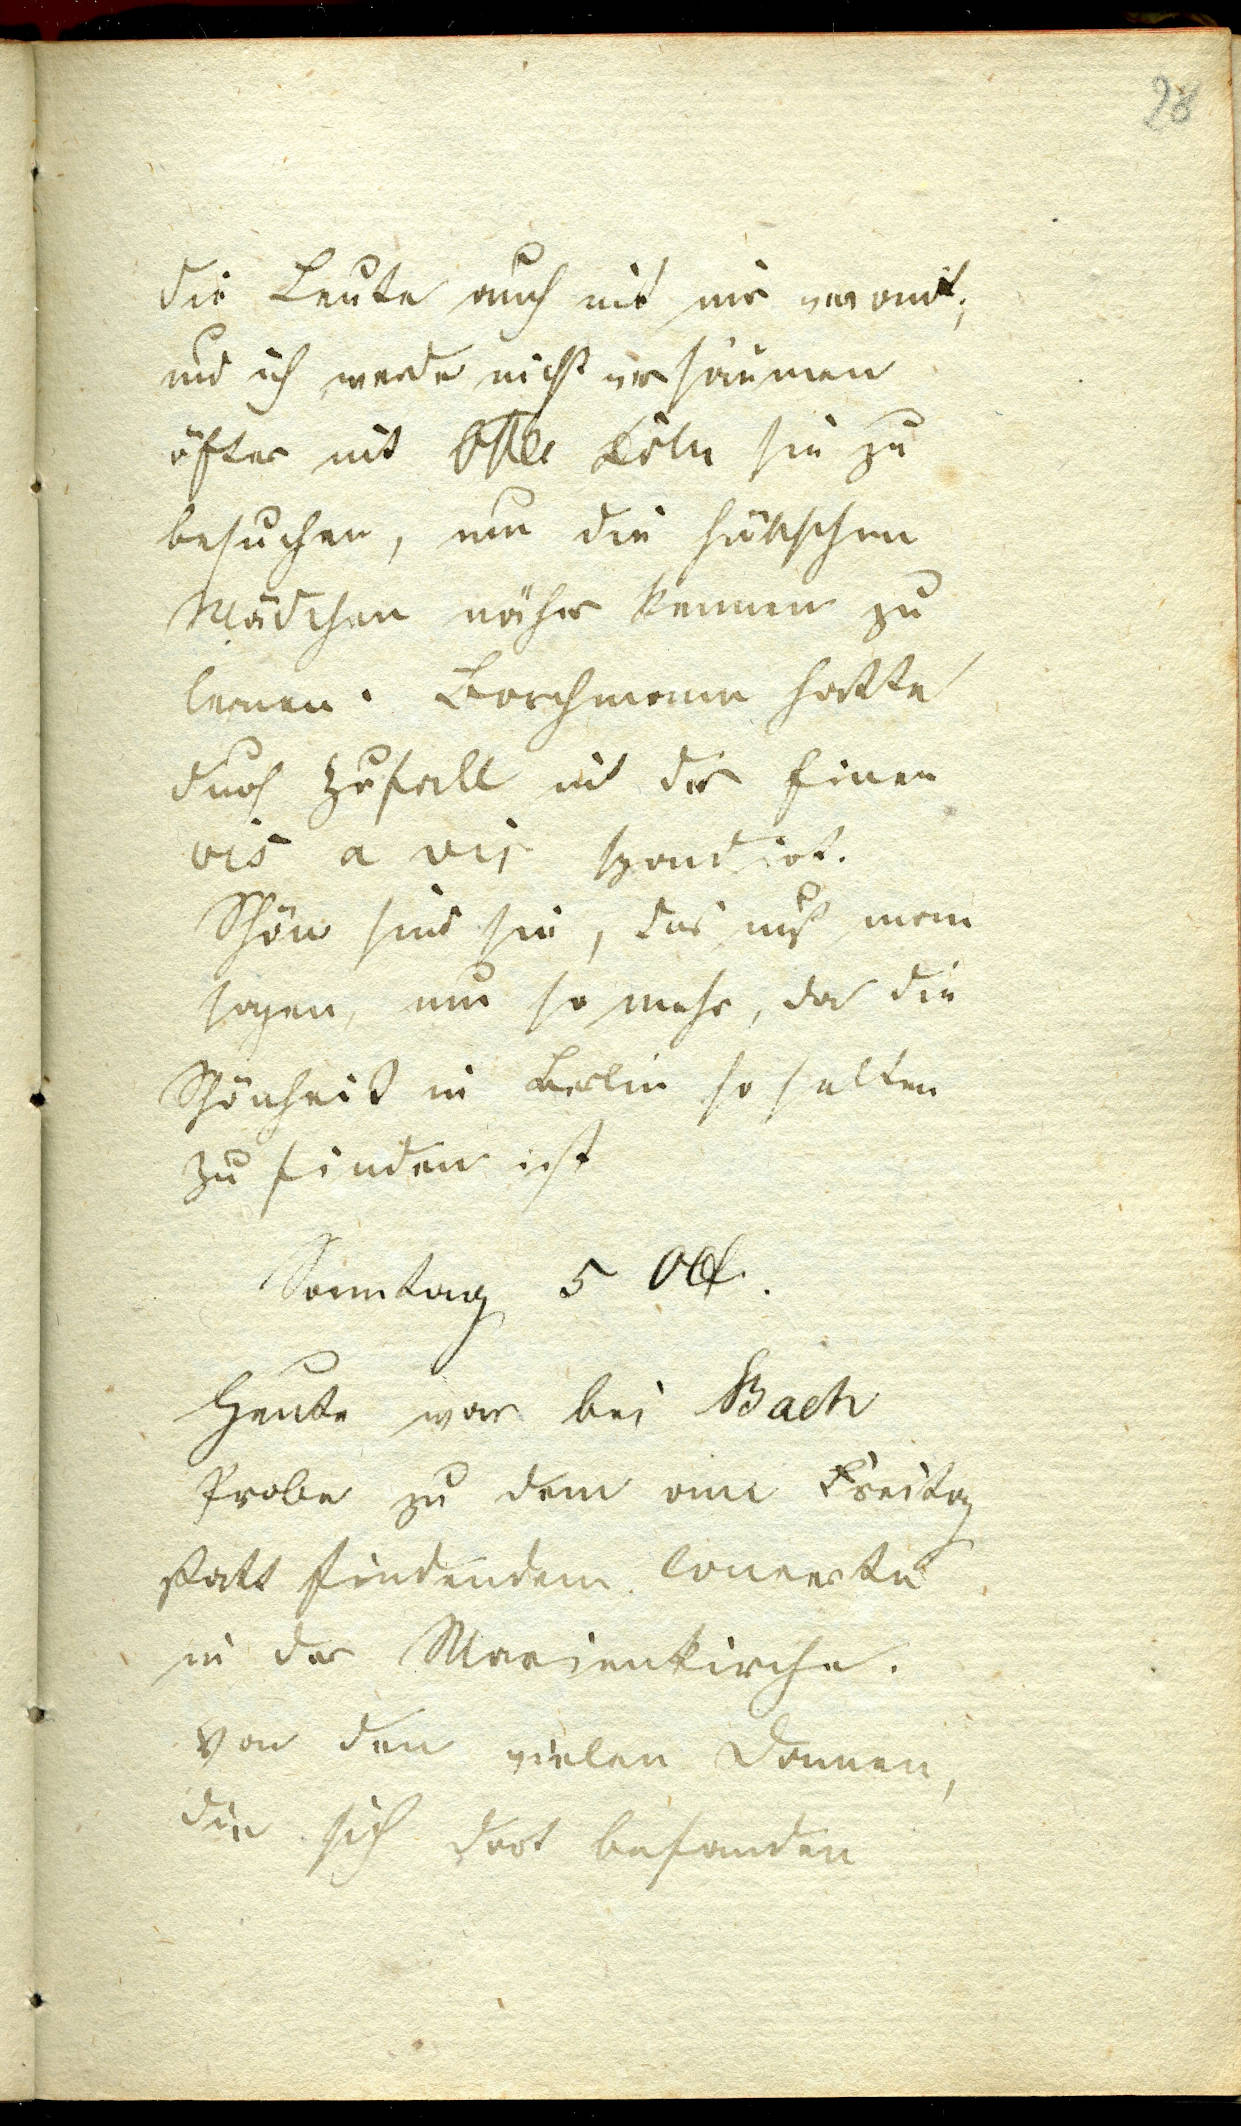 28
die Leute auch mit mir verwandt;
und ich werde nicht versäumen
öfter mit Köln sie zu
besuchen, um die hübschen
Mädchen näher kennen zu
lernen. Borchmann hatte
durch Zufall mit der Einen
vis a vis
Schön sind sie, das muß man
sagen, um so mehr, da die
Schönheit in Berlin so selten
zu finden ist
Sonntag 5 Oct.
Heute war bei Bach
Probe zu dem am Freitag
statt findendem Concerte
in der Marienkirche.
Von den vielen Damen,
die sich dort befanden